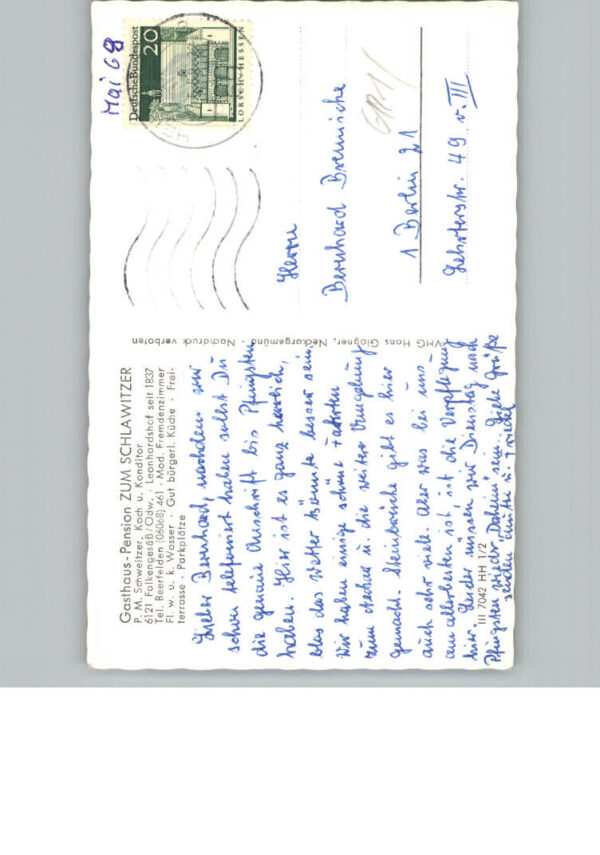 Gasthaus-Pension ZUM SCHLAWITZER
P. M. Schweitzer, Koch u. Konditor
6121 Falkengesäß/Odw. · Leonhardshof seit 1837
Tel. Beerfelden (06068) 461 · Mod. Fremdenzimmer
Fl. w. u. k. Wasser · Gut bürgerl. Küche · Frei-
terrasse · Parkplätze
Lieber Bernhard, nachdem wir
schon telefoniert haben sollst Du
die genaue Anschrift bis Pfingsten
haben. Hier ist es ganz herrlich,
blos das Wetter könnte besser sein.
Wir haben einige schöne Fahrten
zum Neckar u. die weitere Umgebung
gemacht. Steinbrüche gibt es hier
auch sehr viele. Aber was bei uns
am allerbesten ist, ist die Verpflegung
hier. Leider müssen wir Dienstag nach
Pfingsten wieder "Daheim" sein. Liebe Grüße
senden u.
III 7042 HH 1/2
VHG Hans Glogner, Neckargemünd · Nachdruck verboten
Mai 68
Deutsche Bundespost
20
LORSCH/HESSEN
Herrn
Bernhard
1 Berlin 21
Lehrterstr. 49 v. III